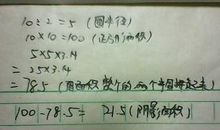 10÷2=5（圆半径）
10×10=100（正方形面积）
5×5×3.14
=25×3.14
=78.5（圆面积 整个的 两个半圆拼起来）
100-78.5=21.5（阴影面积）